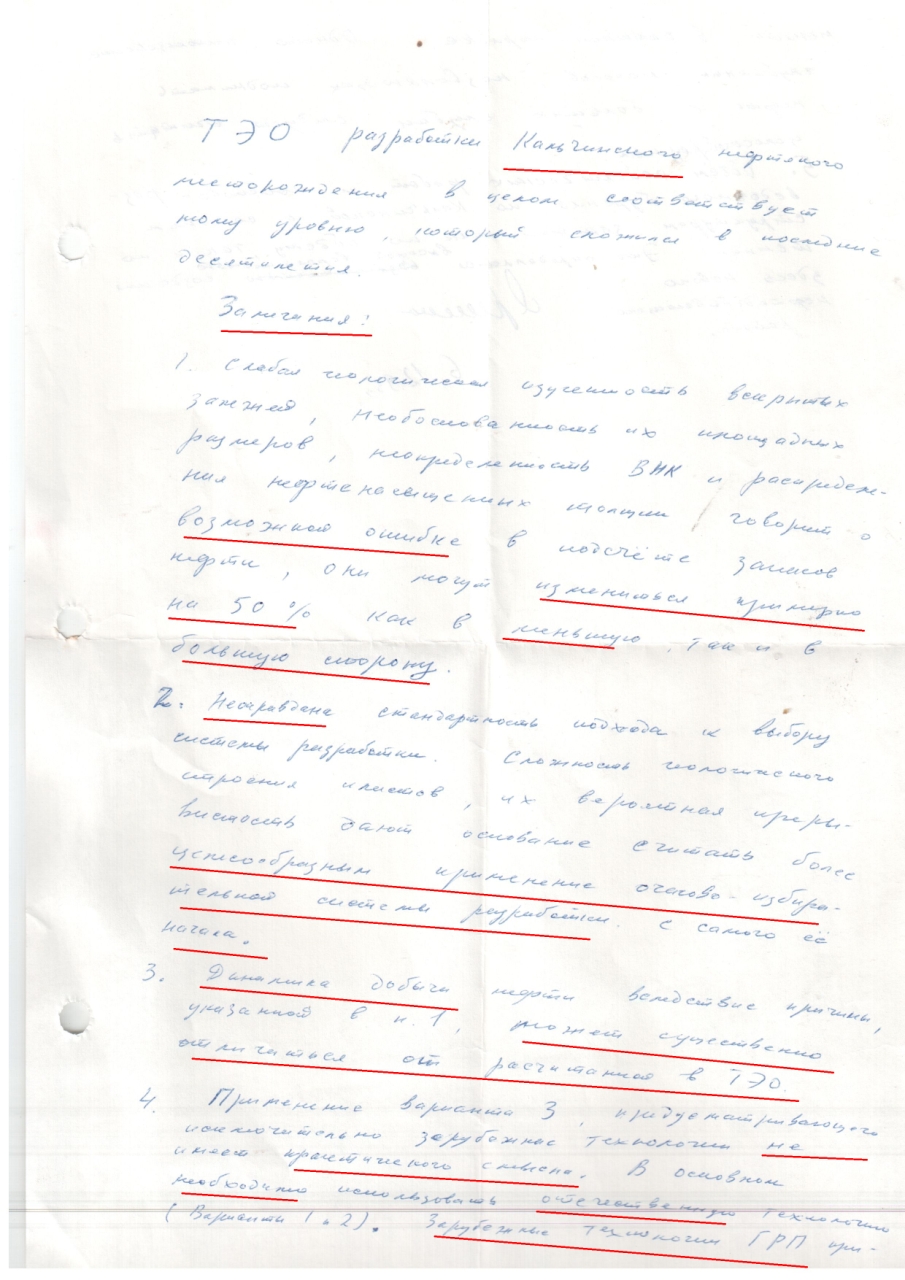 ТЭО разработки Кальчинского нефтяного
месторождения в целом соответствует
тому уровню, который сложился в последние
десятилетия.
Замечания:
1. Слабая геологическая изученность вскрытых
залежей, необоснованность их площадных
размеров, неопределенность ВНК и распределе-
ния нефтенасыщенных толщин говорит о
возможной ошибке в подсчёте запасов
нефти, они могут измениться примерно
на 50% как в меньшую так и в
большую сторону.
2. Неоправдана стандартность подхода к выбору
системы разработки. Сложность геологического
строения пластов, их вероятная преры-
вистость дают основание считать более
целесообразным применение очагово-избира-
тельной системы разработки с самого её
начала.
3. Динамика добычи нефти вследствие причины,
указанной в п.1, может существенно
отличаться от расчитанной в ТЭО.
4. Применение варианта 3, предусматривающего
исключительно зарубежные технологии не
имеет практического смысла. В основном
необходимо использовать отечественную технологию
(Варианты 1 и 2). Зарубежные технологии ГРП при-